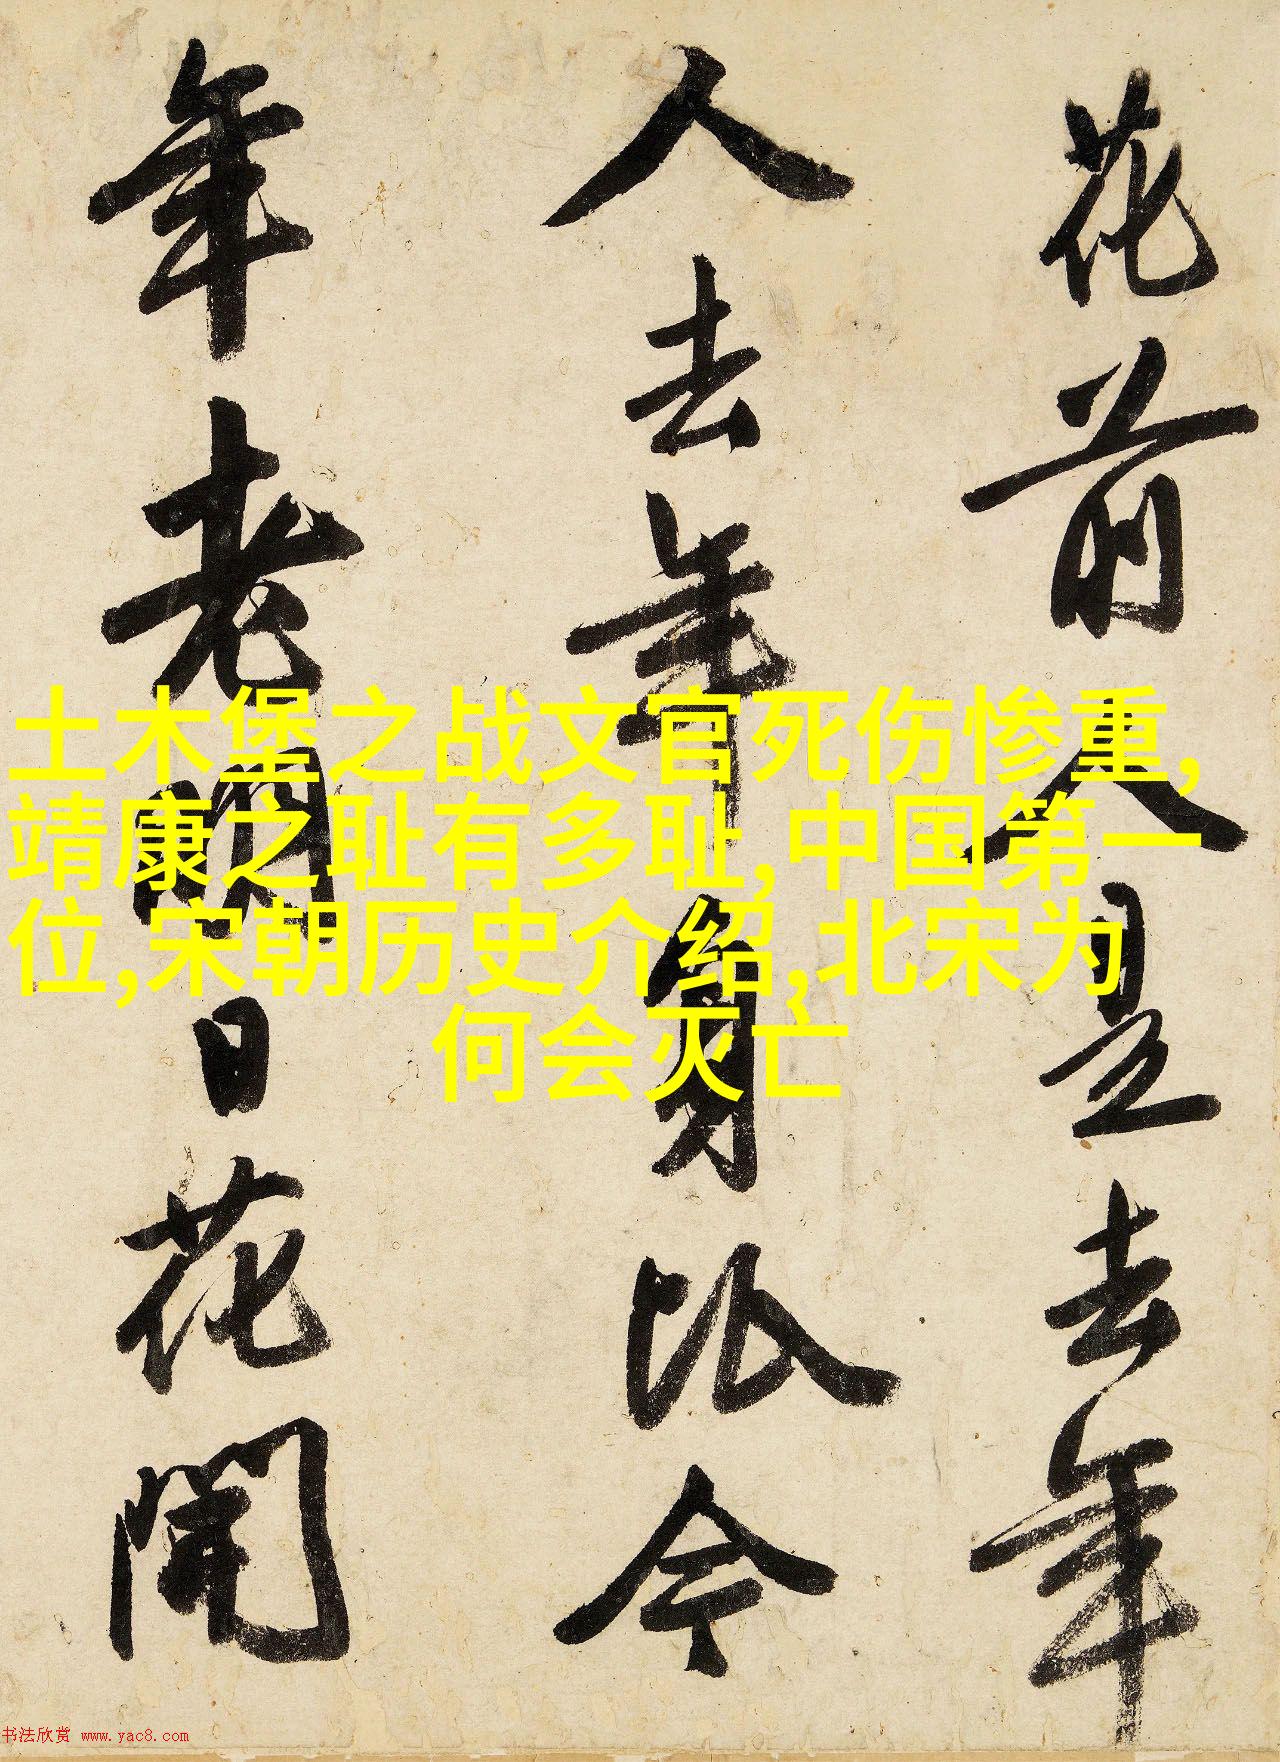 花前人是去年
人去年身比今
年老明日花開
土木堡之战文官死伤惨重,
靖康之耻有多耻,中国第一
位,宋朝历史介绍,北宋为
何会灭亡
书法欣赏 www.yac8.com